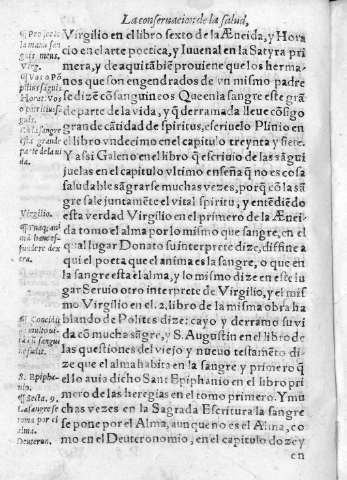 La conseruacion de la salud,
Virgilio en el libro sexto de la Æneida, y Hora
cio en el arte poetica, y Iuuenal en la Satyra pri
mera, y de aqui tãbiẽ prouiene que los herma-
nos que son engendrados de vn mismo padre
se dizẽ cõsanguineos Que en la sangre este grã
de parte de la vida, y q̃ derramada lleue cõsigo
grande cãtidad de spiritus, escriuelo Plinio en
el libro vndecimo en el capitulo treynta y siete.
Y assi Galeno en el libro q̃ escriuio de las sãgui
juelas en el capitulo vltimo enseña q̃ no es cosa
saludable sãgrarse muchas vezes, porq̃ cõ la sãn
gre sale juntamẽte el vital spiritu, y entẽdiẽdo
esta verdad Virgilio en el primero de la Ænei-
da tomo el alma por lo mismo que sangre, en el
qual lugar Donato su interprete dize, diffine a
qui el poeta que el anima es la sangre, o que en
la sangre esta el alma, y lo mismo dize en este lu
gar Seruio otro interprete de Virgilio, y el mis
mo Virgilio en el .2. libro de la misma obra ha
blando de Polites dize: cayo y derramo su vi
da cõ mucha sãgre, y S. Augustin en el libro de
las questiones del viejo y nueuo testamẽto di-
ze que el alma habita en la sangre y primero q̃
ello auia dicho Sant Epiphanio en el libro pri
mero de las heregias en el tomo primero. Y mu
chas vezes en la Sagrada Escritura la sangre
se pone por el Alma, aun que no es el Alma, co
mo en el Deuteronomio, en el capitulo dozey
en
la mana san
guis meus.
Virg.
Vos o Põ
pilius sãguis
Horat. Vos
o patritius sã
guis.
La sangre
esta grande
parte de la vi
da.
Virgilio.
Epipha
nio.
La sangre se
toma por el
alma.
Deutero.